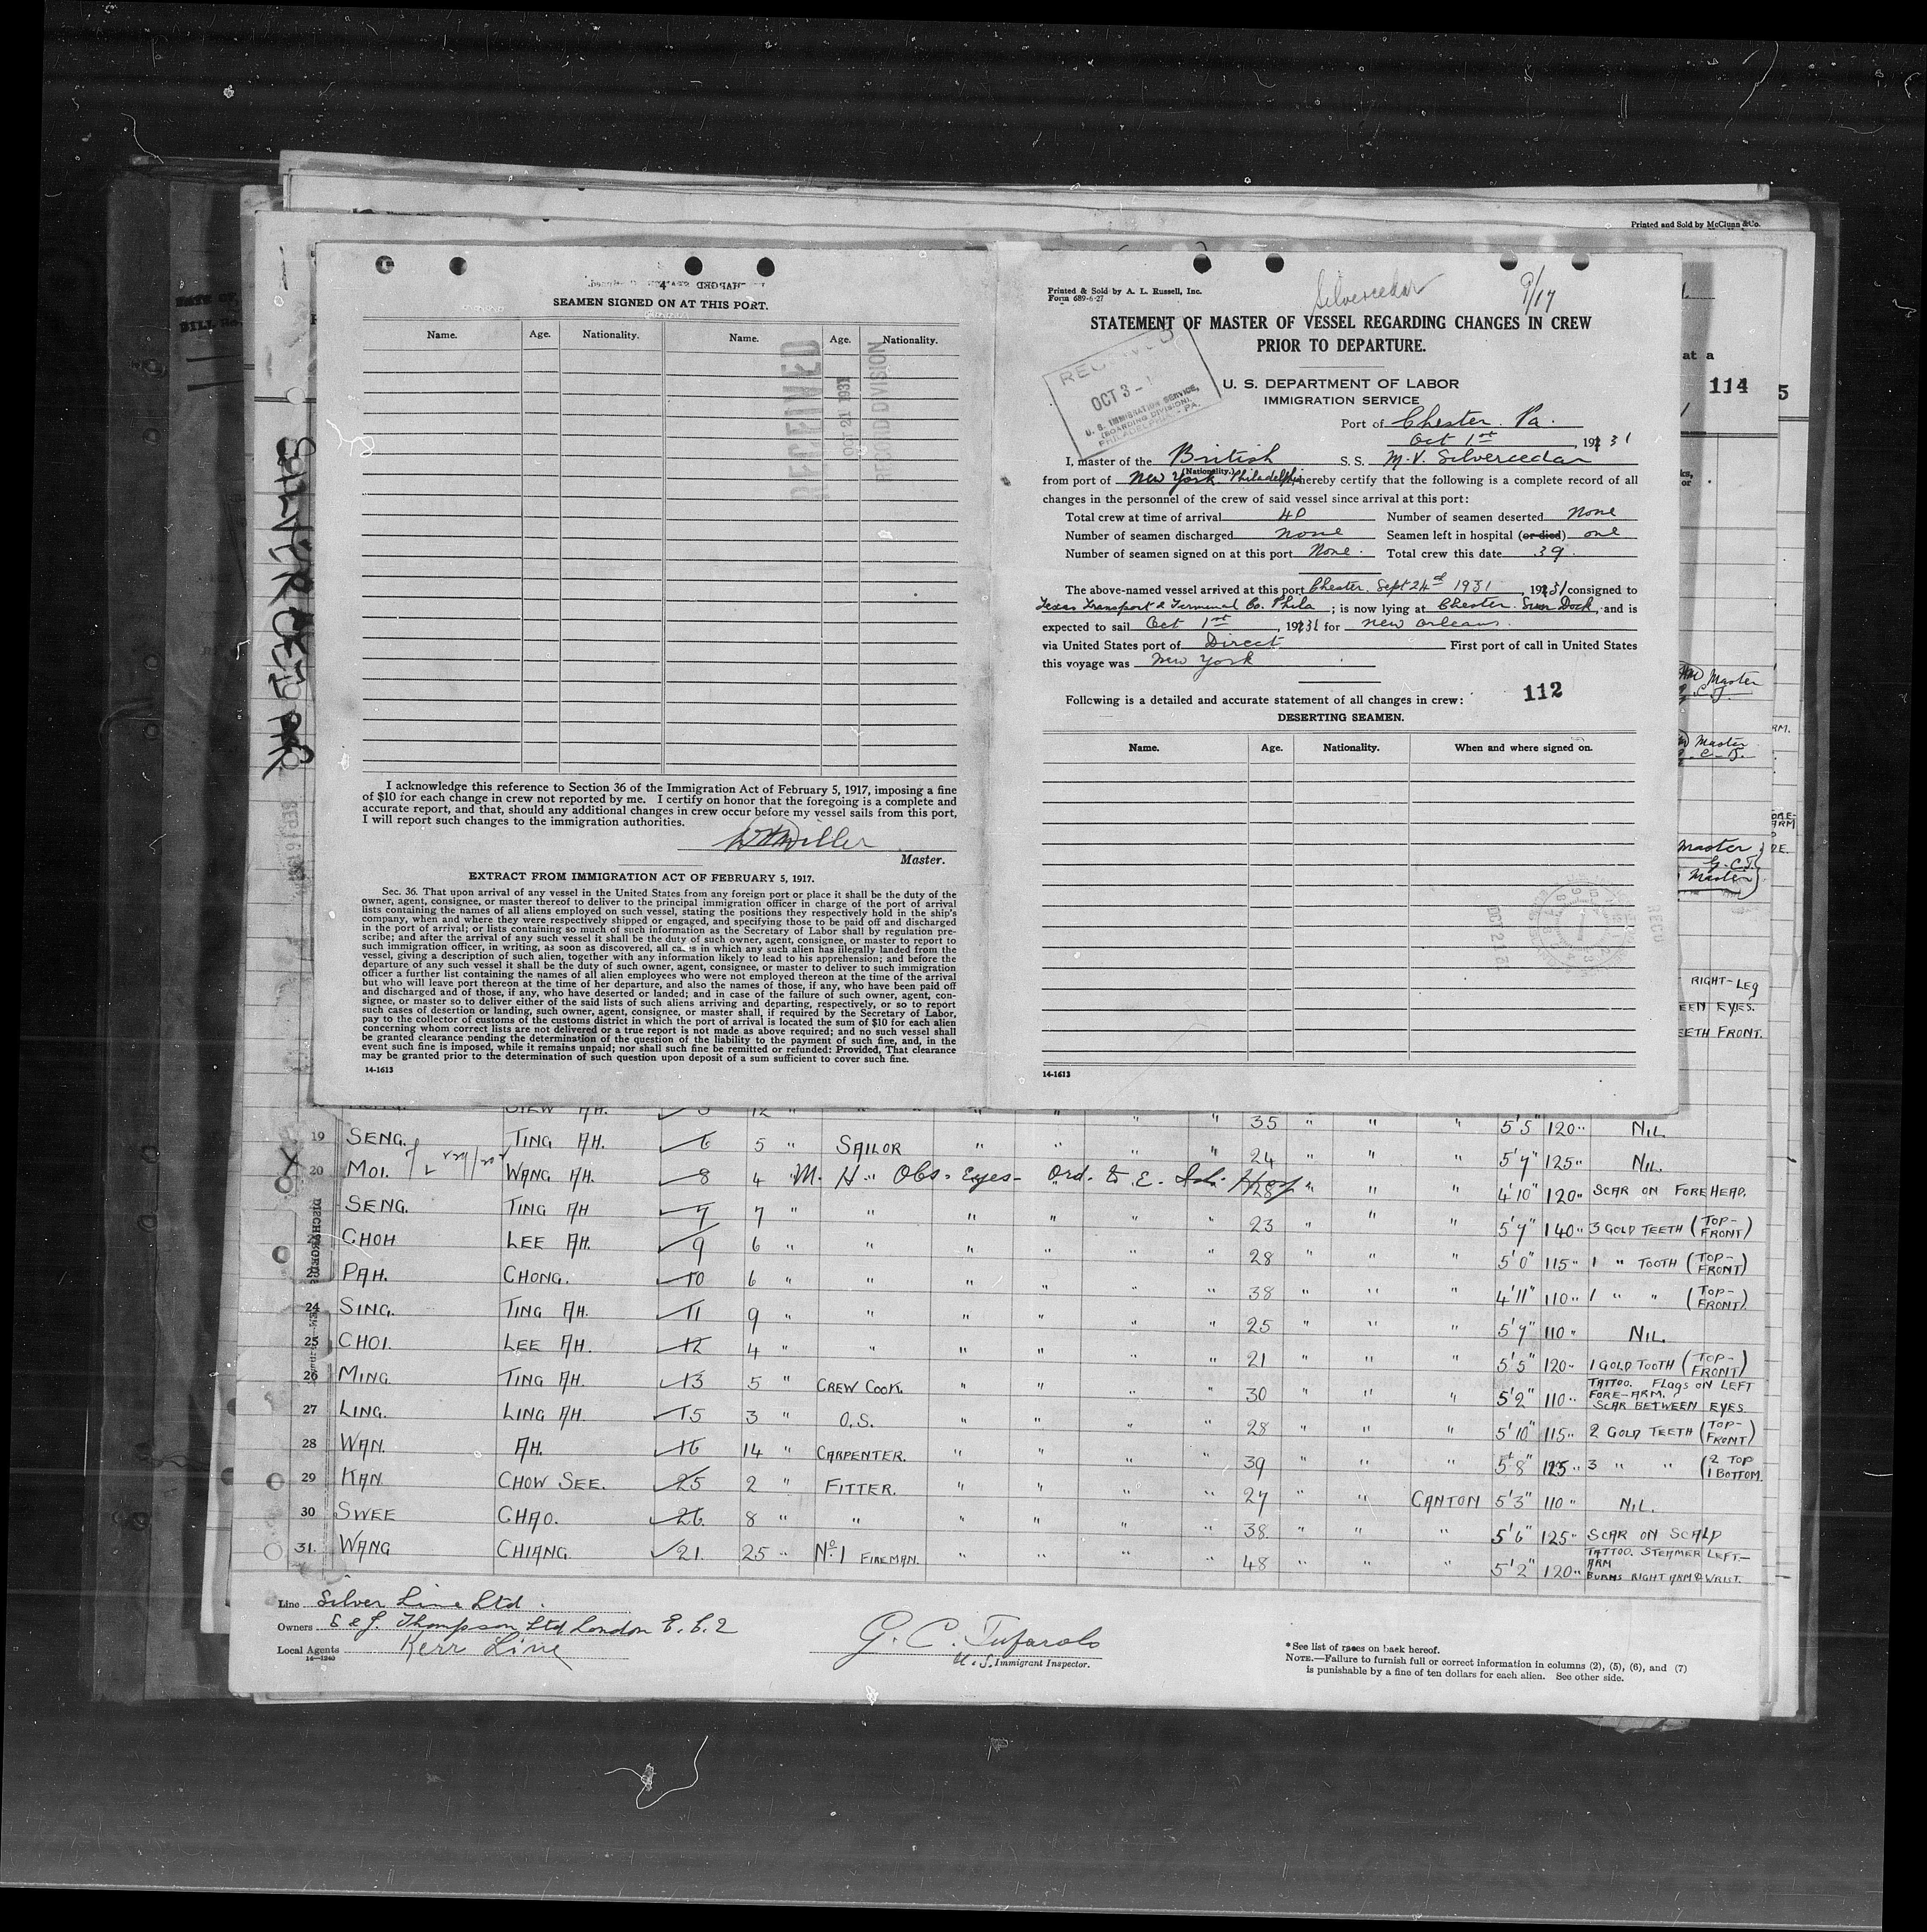 Printed and Sold by McClunn & Co.
SEAMEN SIGNED ON AT THIS PORT.
Name. Age. Nationality. Name. Age. Nationality.
RECEIVED
OCT 21 1931
RECORD DIVISION
I acknowledge this reference to Section 36 of the Immigration Act of February 5, 1917, imposing a fine
of $10 for each change in crew not reported by me. I certify on honor that the foregoing is a complete and
accurate report, and that, should any additional changes in crew occur before my vessel sails from this port,
I will report such changes to the immigration authorities.
Master.
EXTRACT FROM IMMIGRATION ACT OF FEBRUARY 5, 1917.
Sec. 36. That upon arrival of any vessel in the United States from any foreign port or place it shall be the duty of the
owner, agent, consignee, or master thereof to deliver to the principal immigration officer in charge of the port of arrival
lists containing the names of all aliens employed on such vessel, stating the positions they respectively hold in the ship's
company, when and where they were respectively shipped or engaged, and specifying those to be paid off and discharged
in the port of arrival; or lists containing so much of such information as the Secretary of Labor shall by regulation pre-
scribe; and after the arrival of any such vessel it shall be the duty of such owner, agent, consignee, or master to report to
such immigration officer, in writing, as soon as discovered, all cases in which any such alien has illegally landed from the
vessel, giving a description of such alien, together with any information likely to lead to his apprehension; and before the
departure of any such vessel it shall be the duty of such owner, agent, consignee, or master to deliver to such immigration
officer a further list containing the names of all alien employees who were not employed thereon at the time of the arrival
but who will leave port thereon at the time of her departure, and also the names of those, if any, who have been paid off
and discharged and of those, if any, who have deserted or landed; and in case of the failure of such owner, agent, con-
signee, or master so to deliver either of the said lists of such aliens arriving and departing, respectively, or so to report
such cases of desertion or landing, such owner, agent, consignee, or master shall, if required by the Secretary of Labor,
pay to the collector of customs of the customs district in which the port of arrival is located the sum of $10 for each alien
concerning whom correct lists are not delivered or a true report is not made as above required; and no such vessel shall
be granted clearance pending the determination of the question of the liability to the payment of such fine, and, in the
event such fine is imposed, while it remains unpaid; nor shall such fine be remitted or refunded: Provided, That clearance
may be granted prior to the determination of such question upon deposit of a sum sufficient to cover such fine.
14-1613
SILVERCEDAR
Printed & Sold by A. L. Russell, Inc.
Form 689-6-27
Silvercedar 9/17
STATEMENT OF MASTER OF VESSEL REGARDING CHANGES IN CREW
PRIOR TO DEPARTURE.
RECEIVED
OCT 3 - 1
U. S. IMMIGRATION SERVICE,
(BOARDING DIVISION),
PHILADELPHIA, - PA.
U. S. DEPARTMENT OF LABOR
IMMIGRATION SERVICE
Port of Chester. Pa.
Oct 1st, 1931
I, master of the British S. S. M.V. Silvercedar
(Nationality.)
from port of New York Philadelphia hereby certify that the following is a complete record of all
changes in the personnel of the crew of said vessel since arrival at this port:
Total crew at time of arrival 40 Number of seamen deserted None
Number of seamen discharged none Seamen left in hospital (or died) one
Number of seamen signed on at this port None. Total crew this date 39.
The above-named vessel arrived at this port Chester. Sept 24th 1931, 1931 consigned to
Texas Transport & Terminal Co. Phila; is now lying at Chester Sun Dock, and is
expected to sail Oct 1st, 1931 for new orleans.
via United States port of Direct First port of call in United States
this voyage was New York
Following is a detailed and accurate statement of all changes in crew: 112
DESERTING SEAMEN.
Name. Age. Nationality. When and where signed on.
14-1613
at a
114 5
Master
Master
Master
Master
RIGHT-LEG
EEN EYES.
EETH FRONT.
SIEW AH. 12 " 35 " " " 5'5 120" NIL.
19 SENG. TING AH. 6 5 " SAILOR " " " 24 " " " 5'7" 125" NIL.
20 MOI. WANG AH. 8 4 " M. H. Obs. Eyes - Ord. to E. Isl. Hosp 28 " " " 4'10" 120" SCAR ON FOREHEAD.
SENG. TING AH 7 7 " " " " " " 23 " " " 5'7" 140" 3 GOLD TEETH (TOP-FRONT)
CHOH LEE AH. 9 6 " " " " " " 28 " " " 5'0" 115" 1 " TOOTH (TOP-FRONT)
PAH. CHONG. 10 6 " " " " " " 38 " " " 4'11" 110" 1 " " (TOP-FRONT)
24 SING. TING AH. 11 9 " " " " " " 25 " " " 5'7" 110" NIL.
25 CHOI. LEE AH. 12 4 " " " " " " 21 " " " 5'5" 120" 1 GOLD TOOTH (TOP-FRONT)
26 MING. TING AH. 13 5 " CREW COOK. " " " " 30 " " " 5'2" 110" TATTOO. FLAGS ON LEFT FORE-ARM. SCAR BETWEEN EYES.
27 LING. LING AH. 15 3 " O.S. " " " " 28 " " " 5'10" 115" 2 GOLD TEETH (TOP-FRONT)
28 WAN. AH. 16 14 " CARPENTER. " " " " 39 " " " 5'8" 125" 3 " " (2 TOP 1 BOTTOM.
29 KAN. CHOW SEE. 25 2 " FITTER. " " " " 27 " " CANTON 5'3" 110" NIL.
30 SWEE CHAO. 26 8 " " " " " " 38 " " " 5'6" 125" SCAR ON SCALP
31. WANG CHIANG 21. 25 " No. 1 FIREMAN. " " " " 48 " " " 5'2" 120" TATTOO. STEAMER LEFT-ARM BURNS RIGHT ARM & WRIST.
Line Silver Line Ltd.
Owners S & J. Thompson Ltd London E.C.2
Local Agents Kerr Line
14-1240
G. C. Tufarolo
U.S. Immigrant Inspector.
*See list of races on back hereof.
NOTE.—Failure to furnish full or correct information in columns (2), (5), (6), and (7)
is punishable by a fine of ten dollars for each alien. See other side.